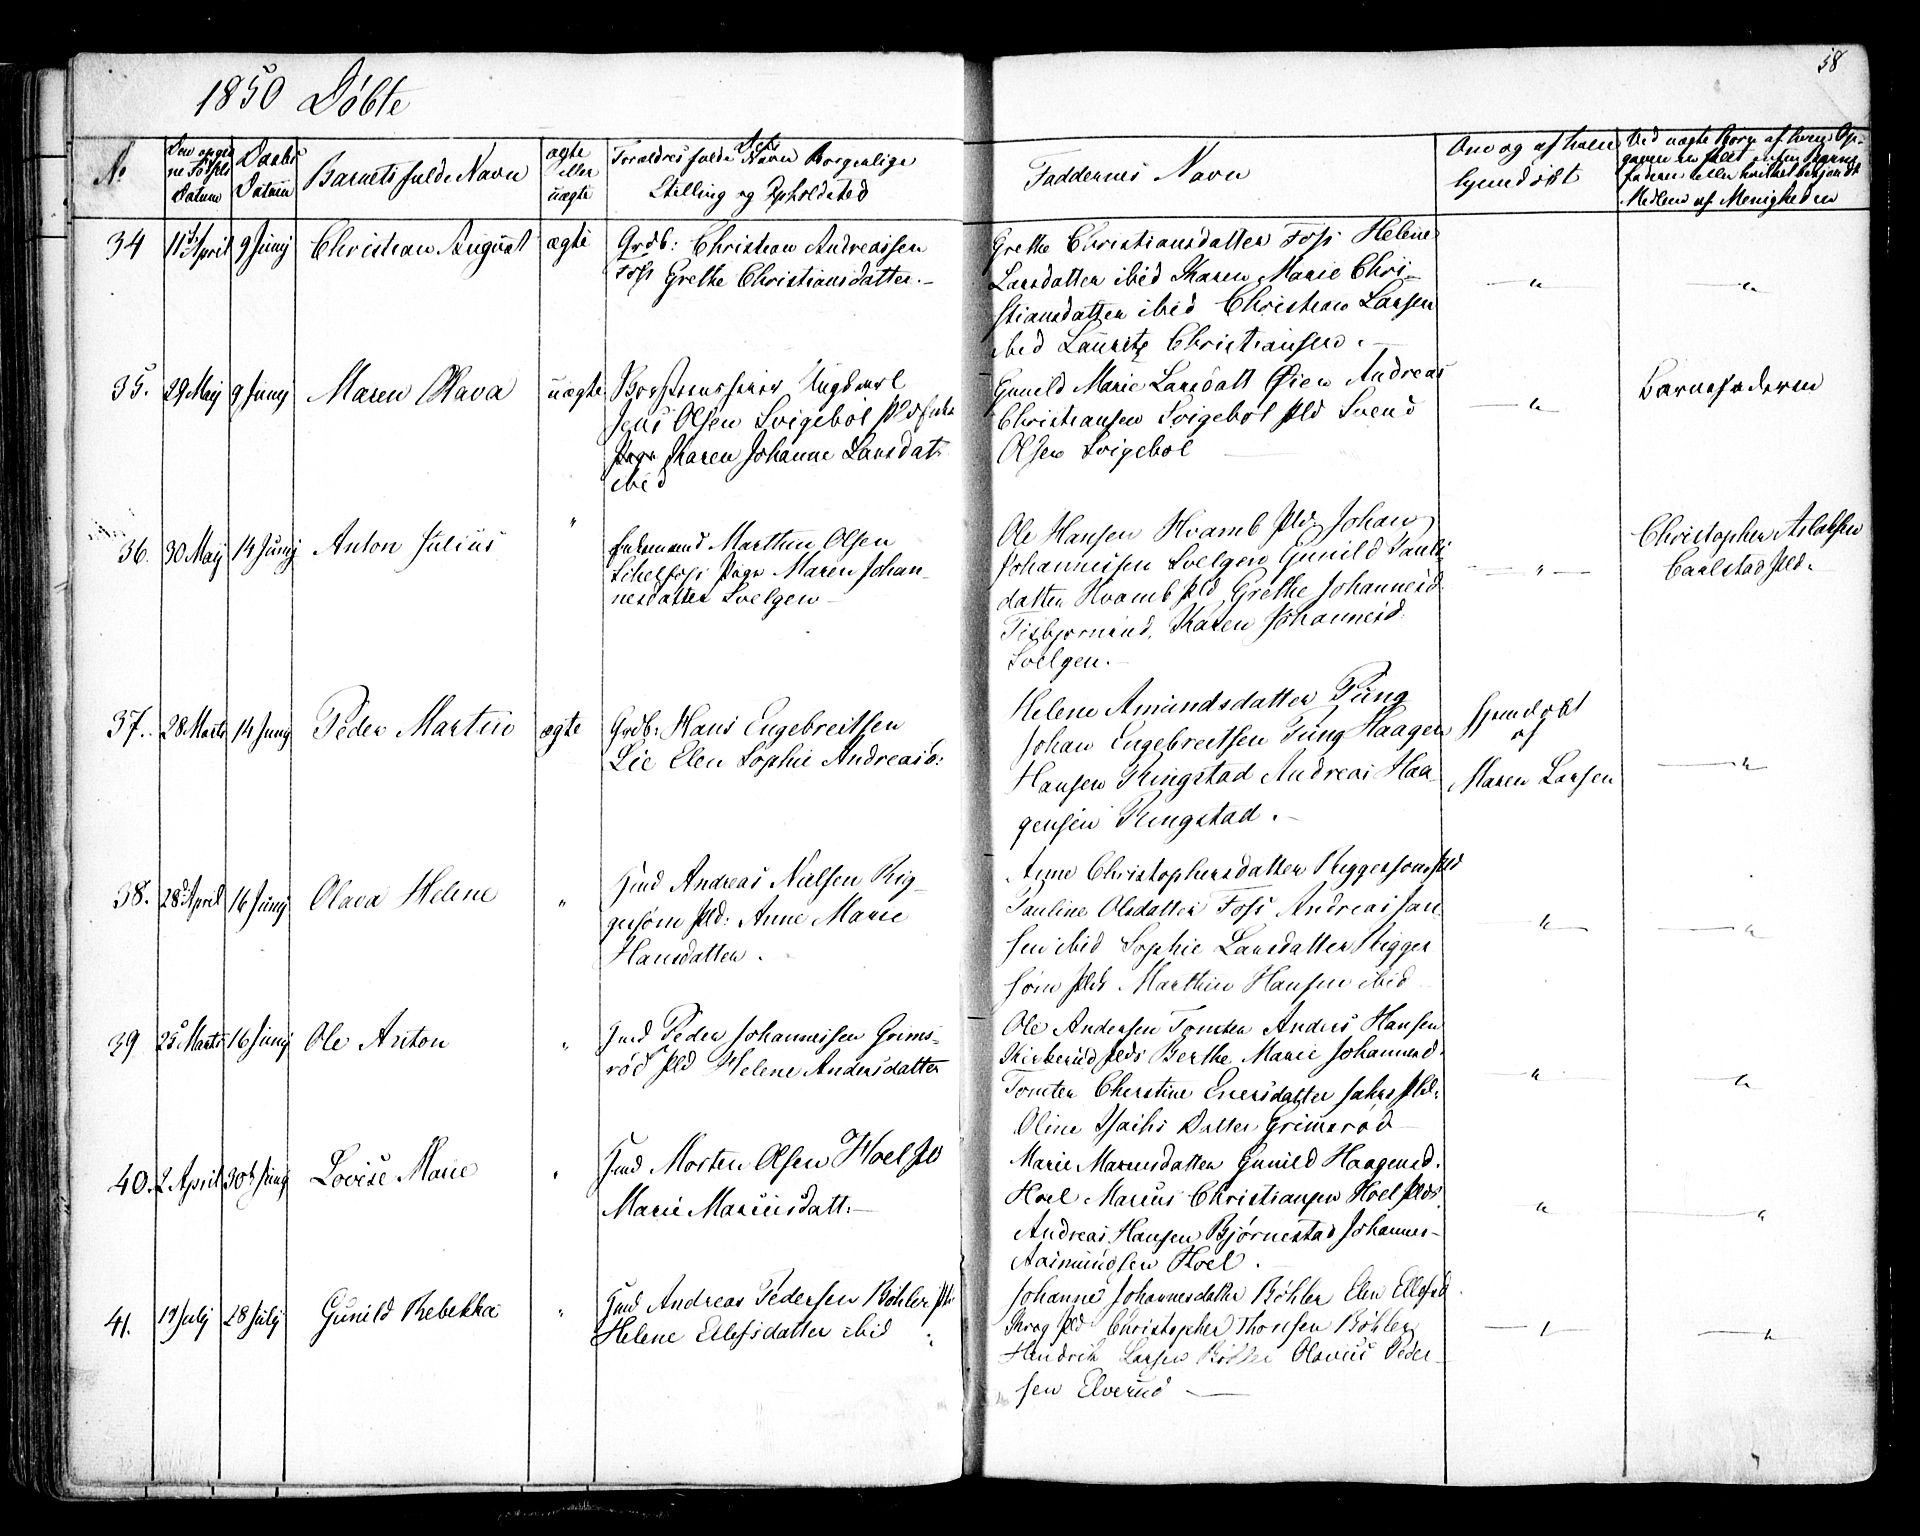 58
1850 Döbte
No
Den opgiv
ne Födsels
Datum
Daabs
Datum
Barnets fulde Navn
ægte
eller
uægte
Forældres fulde Navn Borgerlige
Stilling og Opholdsted
Faddernes Navn
Om og af hvem
hjemdöbt
Ved uægte Börn af hvem Op-
gaven er
Medlem af Menigheden
34 11 April 9 Junij Christian August ægte
Grdb: Christian Andreassen
Foss Grethe Christiansdatter.
Grethe Christiansdatter Foss Helene
Larsdatter ibid Karen Marie Chri-
stiansdatter ibid Christian Larsen
ibid Lauritz Christiansen.
35. 29 Maij 9 Junij Maren Olava uægte
Ungkarl
Jens Olsen Svigebøl Pld Enke
Karen Johanne Larsdat
ibid
Gunild Marie Larsdatt Øien Andreas
Christiansen Svigebøl Pld Svend
Olsen Svigebøl
Barnefaderen
36. 30 Maij 14 Junij Anton Julius "
Enkemand Marthin Olsen
Sikelfoss Pige Maren Johan-
nesdatter Svelgen
Ole Hansen Hvamb Pld Johan
Johannessen Svelgen Gunild Pauls
datter Hvamb Pld Grethe Johannesd.
Tisbjørnrud, Karen Johannesd.
Svelgen.
Christopher Aslaksen
Carlstad Pld.
37. 28 Marts 14 Junij Peder Martin ægte
Grdb: Hans Engebretsen
Lie Elen Sophie Andreasd:
Helene Amundsdatter Tüng
Johan Engebretsen Tüng Haagen
Hansen Ringstad Andreas Haa-
gensen Ringstad.
Hjemdøbt
af
Maren Larsen
38. 28 April 16 Junij Olava Helene "
Hmd Andreas Nielsen Rig-
gersøm Pld: Anne Marie
Hansdatter.
Anne Christophersdatter Riggersøm Pld
Pauline Olsdatter Foss Andreas Jan-
sen ibid Sophie Larsdatter Rigger
søm Pld. Marthin Hansen ibid
39 25 Marts 16 Junij Ole Anton "
Hmd Peder Johannessen Grims-
röd Pld Helene Andersdatter
Ole Andersen Tomter Anders Hansen
Kirkerüd Pld Berthe Marie Johannesd.
Tomter Cherstine Eversdatter Pld.
Oline Isachs Datter Grimsrød
40. 2 April 30 Junij Lovise Marie "
Hmd Morten Olsen Hoel Pld
Marie Marcusdatt.
Marie Marcusdatter Gunild Haagensd.
Hoel Marcus Christiansen Hoel Pld.
Andreas Hansen Bjørnestad Johannes
Asimündsen Hoel.
41. 17 Julij 28 Julij Gunild Rebekka "
Hmd Andreas Pedersen Böhler Pld
Helene Ellefsdatter ibid
Johanne Johannesdatter Böhler Elen Ellefsd.
Krog Pld Christopher Thoresen Böhler
Hendrik Larsen Olavus Peder-
sen Elverud